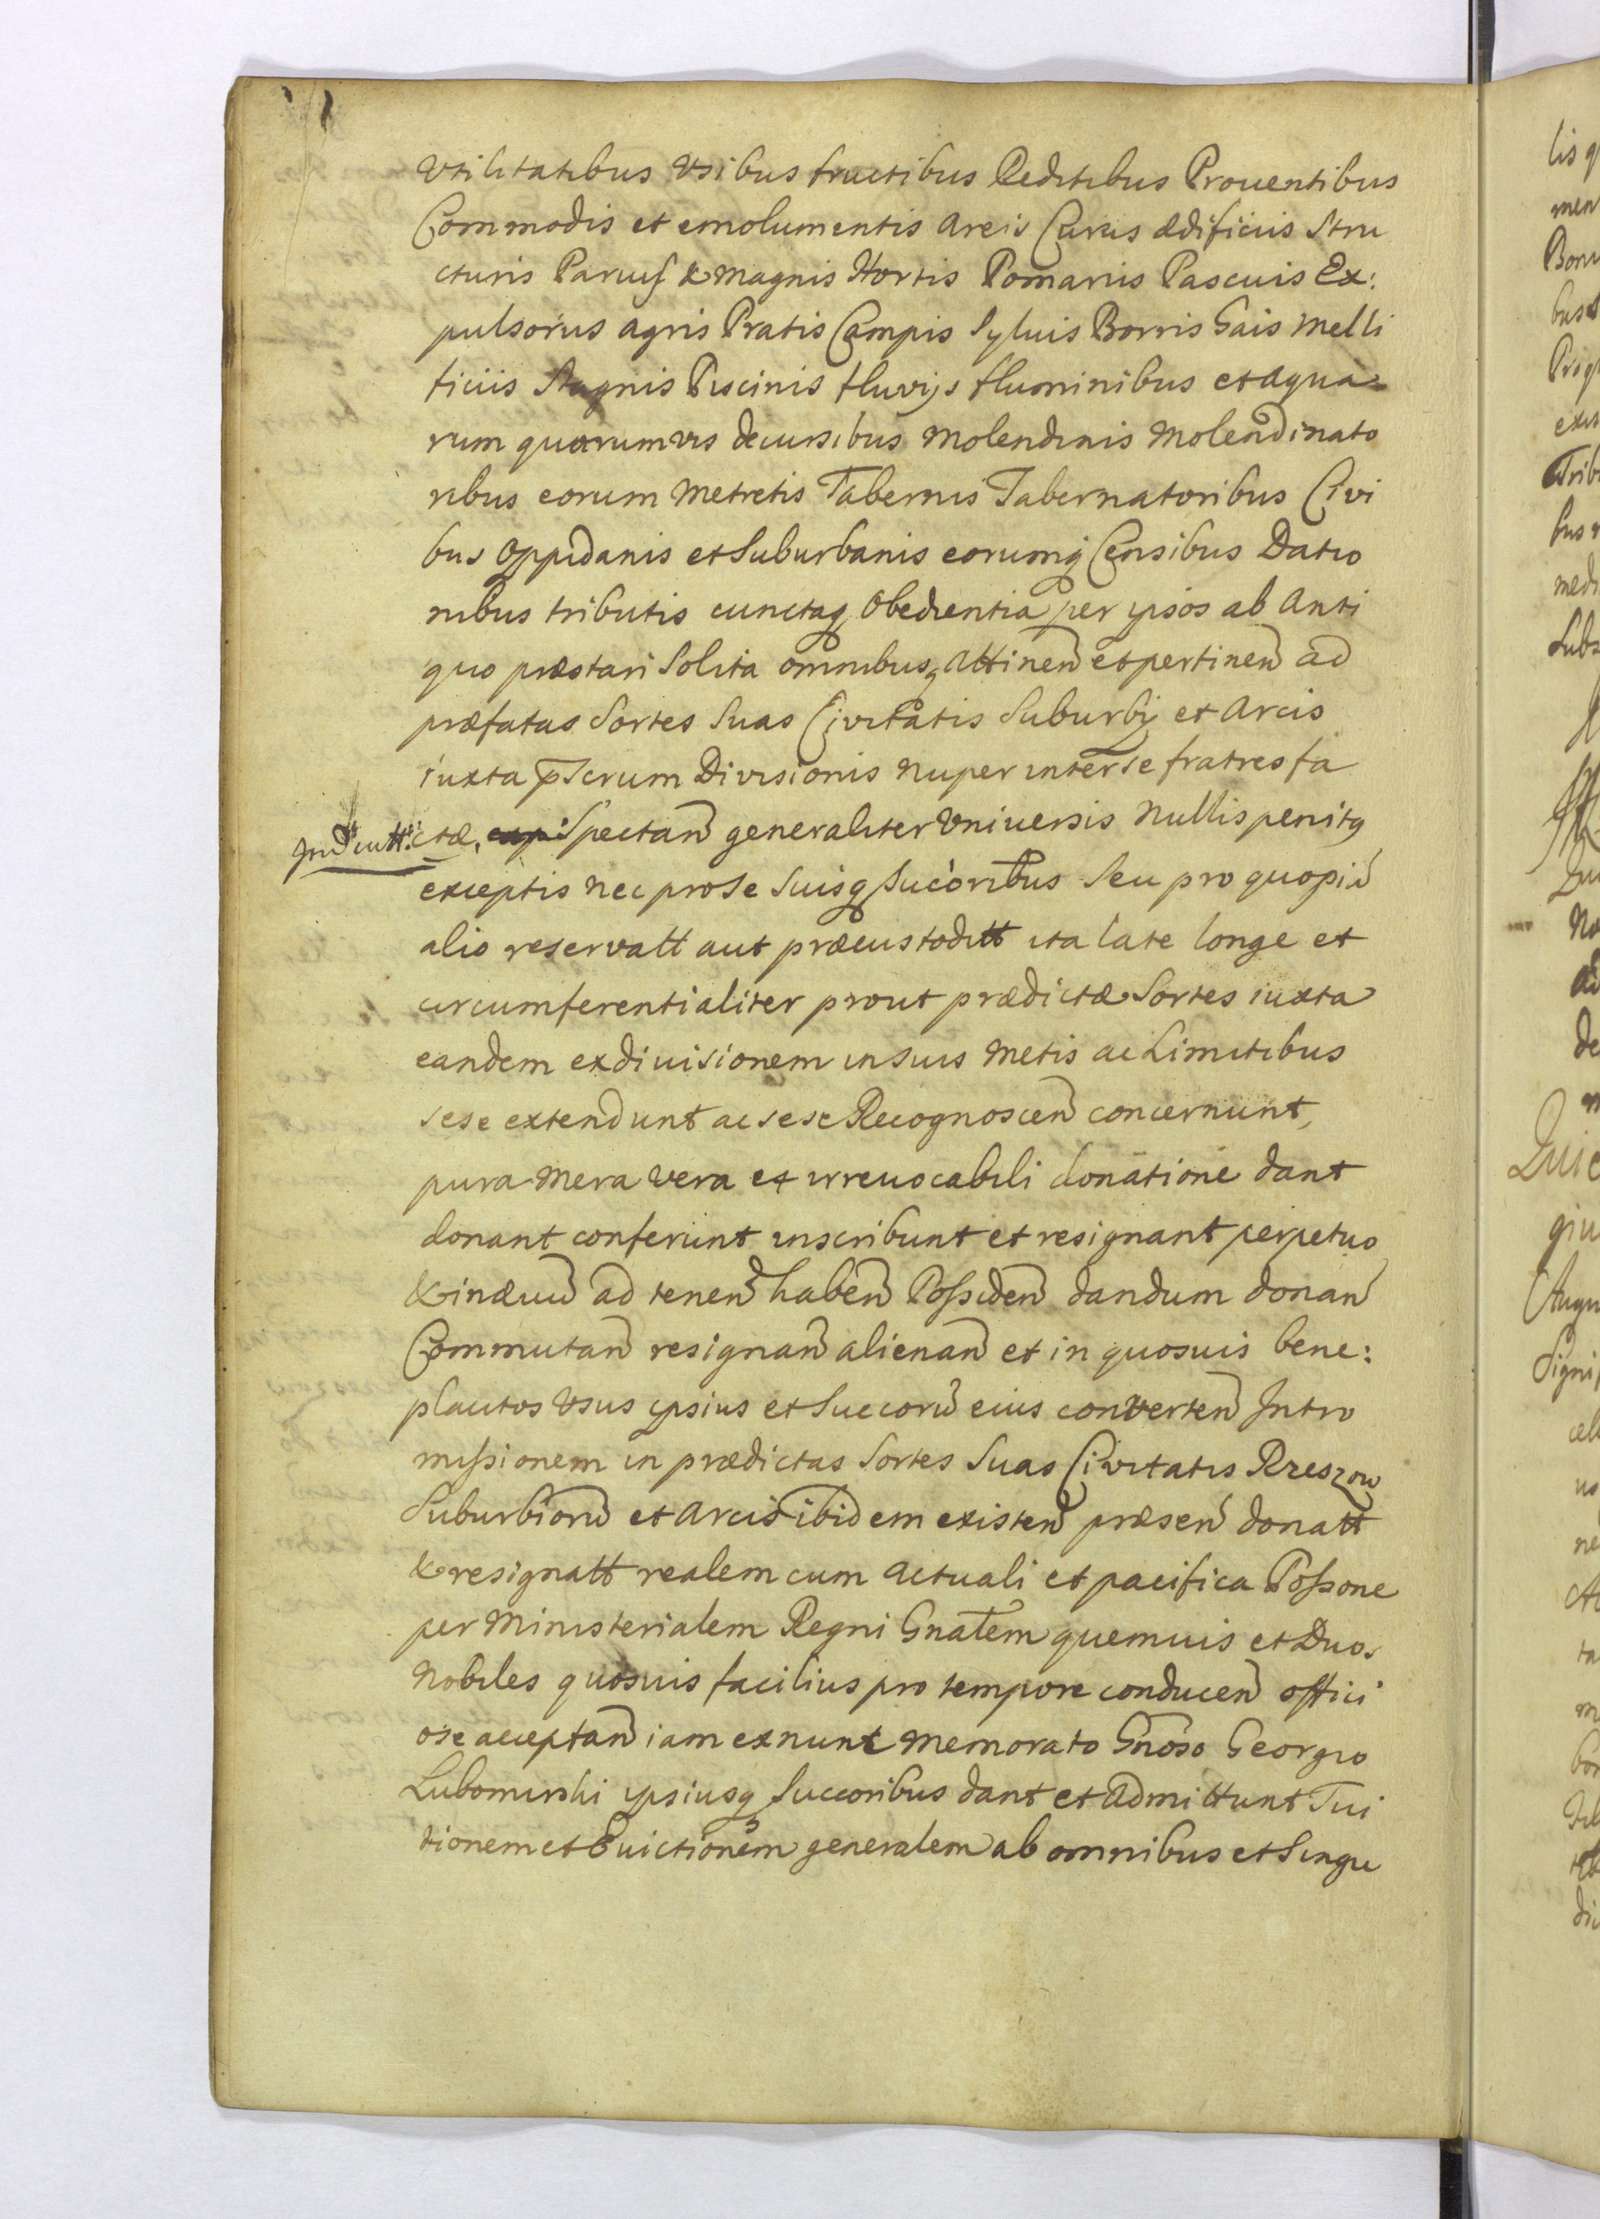 Vtilitatibus Vsibus fructibus Reditibus Prouentibus
Commodis et emolumentis Areis Curiis ædificiis Stru
cturis Paruis & Magnis Hortis Pomariis Pascuis Ex:
pulsorus agris Pratis Campis Syluis Borris Gais Melli
ficiis Stagnis Piscinis fluvijs fluminibus et aqua
rum quarumvis decursibus Molendinis Molendinato
ribus eorum Metretis Tabernis Tabernatoribus Civi
bus Oppidanis et Suburbanis eorumq Censibus Datio
nibus tributis cunctaq Obedientia per ipsos ab Anti
quo præstari Solita omnibusq Attinen et pertinen ad
præfatas Sortes Suas Civitatis Suburbij et Arcis
iuxta Divisionis nuper inter se fratres fa
ctæ, Spectan generaliter Vniuersis Nullis penitq
exceptis nec pro Se Suisq Sucòribus Seu pro quopiū
alio reservatt aut præcustoditt ita late longe et
circumferentialiter prout prædictæ Sortes iuxta
eandem exdiuisionem in Suis Metis ac Limitibus
sese extendunt ac sese Recognoscen concernunt,
pura Mera vera et irreuocabili donatione dant
donant conferunt inscribunt et resignant perpetuo
& in æuū ad tenen haben Possiden dandum donan
Commutan resignan alienan et in quosuis bene:
placitos Vsus ipsius et Succorū eius converten Intro
missionem in prædictas Sortes Suas Civitatis Rzeszow
Suburbiorū et Arcis ibidem existen præsen donatt
& resignatt realem cum Actuali et pacifica Possone
per Ministerialem Regni Gnalem quemuis et Duos
Nobiles quosuis facilius pro tempore conducen offici
ose acceptan iam ex nunc Memorato Gnoso Georgio
Lubomirski ipsiusq Succoribus dant et Admittunt Tui
tionem et Euictionem generalem ab omnibus et Singu